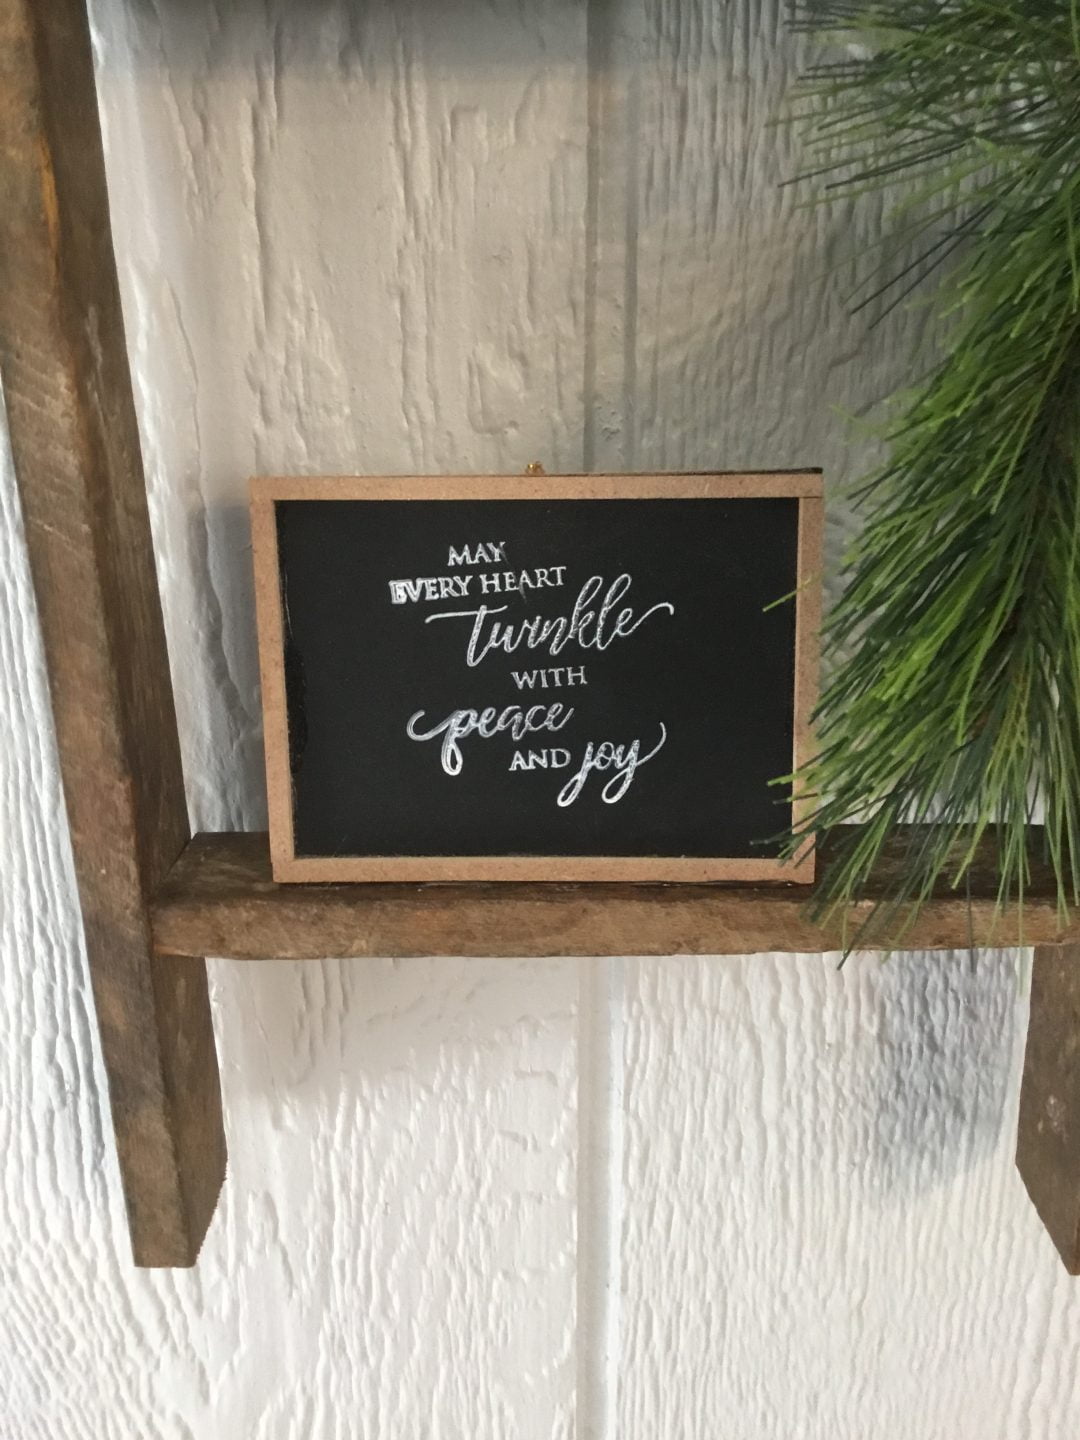 MAY
EVERY HEART
twinkle
WITH
peace
AND joy